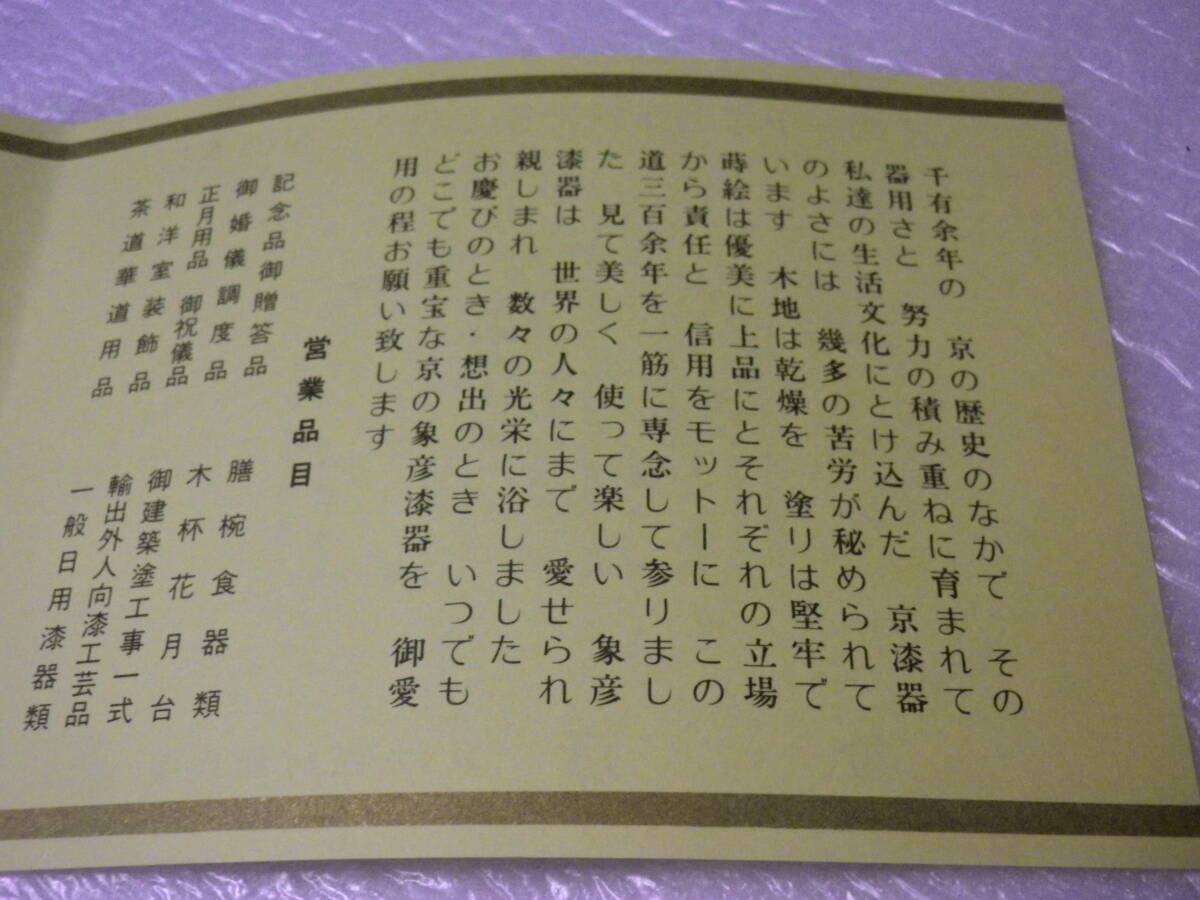 千有余年の　京の歴史のなかで　その
器用さと　努力の積み重ねに育まれて
私達の生活文化にとけ込んだ　京漆器
のよさには　幾多の苦労が秘められて
います　木地は乾燥を　塗りは堅牢で
蒔絵は優美に上品にとそれぞれの立場
から責任と　信用をモットーに　この
道三百余年を一筋に専念して参りまし
た　見て美しく　使って楽しい　象彦
漆器は　世界の人々にまで　愛せられ
親しまれ　数々の光栄に浴しました
お慶びのとき・想出のとき　いつでも
どこでも重宝な京の象彦漆器を　御愛
用の程お願い致します
営業品目
記念品御贈答品
御婚儀調度品
正月用品御祝儀品
和洋室装飾品
茶道華道用品
膳椀食器類
木杯花月台
御建築塗工事一式
輸出外人向漆工芸品
一般日用漆器類